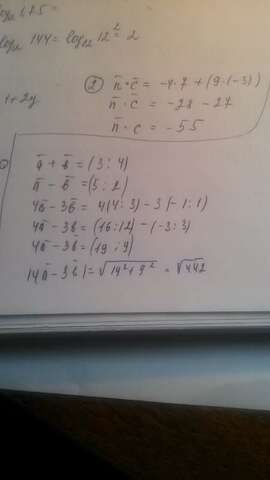 log₁₂ 144 = log₁₂ 12² = 2
② n̄ · c̄ = -4·7 + (9·(-3))
n̄ · c̄ = -28 - 27
n̄ · c = -55
ā + b̄ = (3; 4)
n̄ - b̄ = (5; 2)
4ā - 3b̄ = 4(4; 3) - 3(-1; 1)
4ā - 3b = (16; 12) - (-3; 3)
4ā - 3b̄ = (19; 9)
|4ā - 3b̄| = √19² + 9² = √442